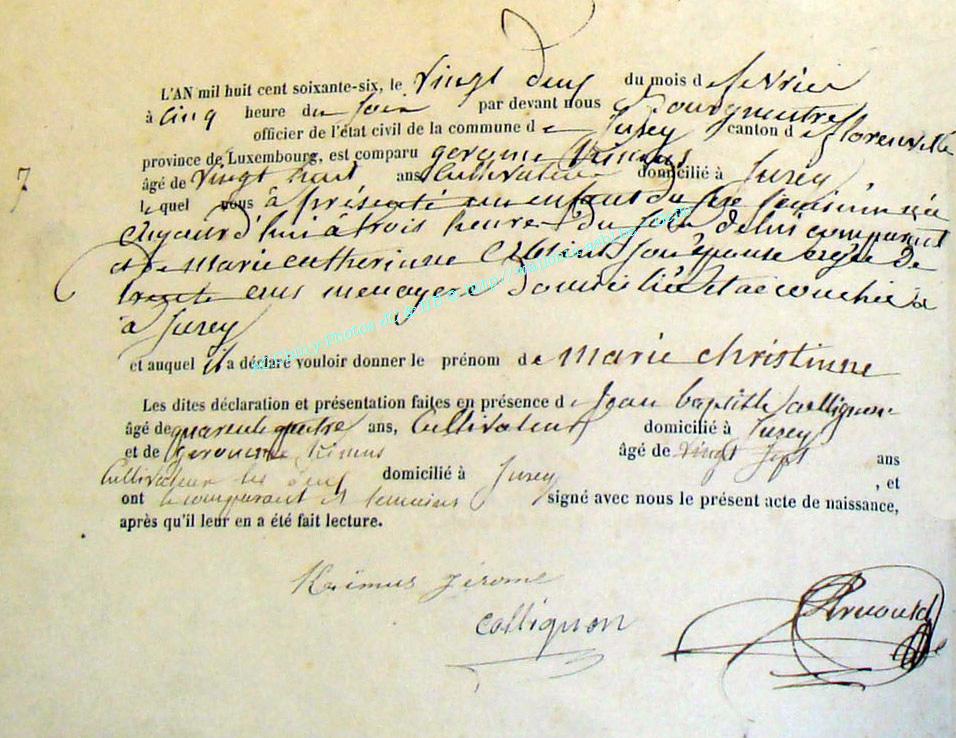 L'AN mil huit cent soixante-six, le vingt deux du mois de fevrier
à cinq heure du soir par devant nous Bourgmestre
officier de l'état civil de la commune de Juzey canton de florenville
province de Luxembourg, est comparu gerome Kimus
7
âgé de vingt huit ans cultivateur domicilié à Juzey
lequel nous à présenté un enfant du sexe feminin née
aujourd'hui à trois heure du soir de lui comparant
et de marie catherinne son épouse agée de
trente ans menagere domiciliée et accouchée
à Juzey
et auquel il a déclaré vouloir donner le prénom de marie christinne
Les dites déclaration et présentation faites en présence de Jean baptiste collignon
âgé de quarente quatre ans, cultivateur domicilié à Juzey
et de gerome Kimus âgé de vingt sept ans
cultivateur les deux domicilié à Jusey , et
ont le comparant et temoins signé avec nous le présent acte de naissance,
après qu'il leur en a été fait lecture.
Kimus Jérome
Collignon